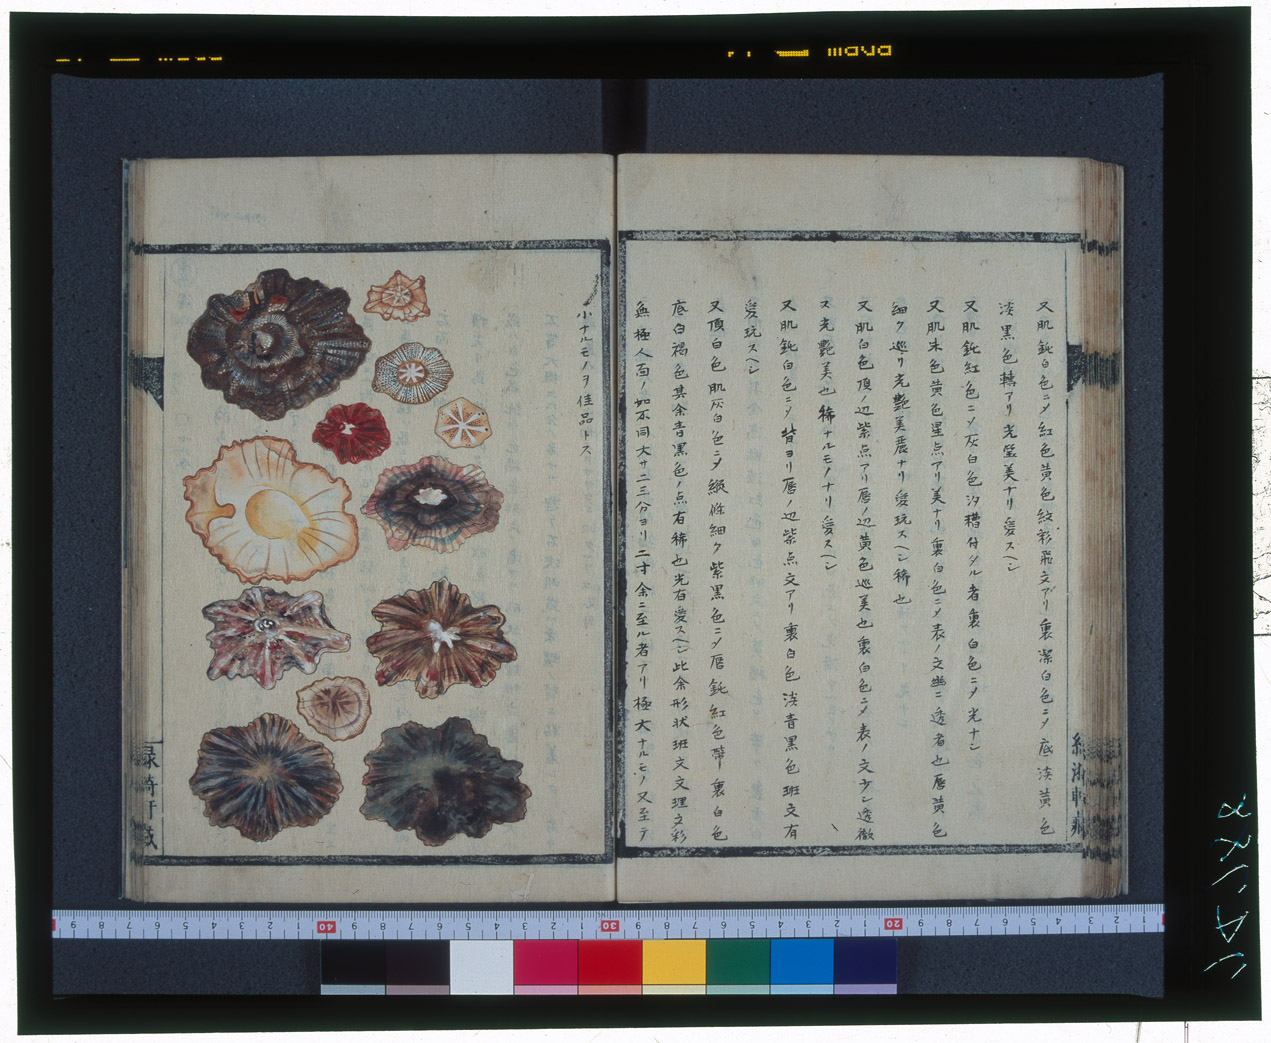 又肌鈍白色ニメ紅色黄色紋彩飛文アリ裏潔白色ニメ底淡黄色
淡黒色轉アリ光瑩美ナリ愛スヘシ
又肌鈍紅色ニメ灰白色汐糟付タル者裏白色ニメ光ナシ
又肌朱色黄色星点アリ美ナリ裏白色ニメ表ノ文幽ニ透者也唇黄色
細ク巡リ光艶美麗ナリ愛玩スヘシ稀也
又肌白色頂ノ辺紫点アリ唇ノ辺黄色巡美也裏白色ニメ表ノ文少シ透徹
又光艶美也稀ナルモノナリ愛スヘシ
又肌鈍白色ニメ背ヨリ唇ノ辺柴点文アリ裏白色淡青黒色斑文有
愛玩スヘシ
又頂白色肌灰白色ニメ縦條細ク紫黒色ニメ唇鈍紅色帯裏白色
底白褐色其余青黒色ノ点有稀也光有愛スヘシ此余形状斑文文理文彩
無極人面ノ如不同大サ二三分ヨリ二寸余ニ至ル者アリ極大ナルモノ又至テ
小ナルモノヲ佳品トス